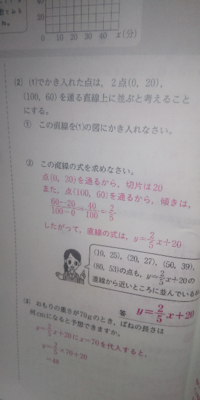 20
0 10 20 30 40 50 60 x(分)
(2) (1)でかき入れた点は，2点(0, 20)，
(100, 60)を通る直線上に並ぶと考えることにする。
① この直線を(1)の図にかき入れなさい。
② この直線の式を求めなさい。
点(0, 20)を通るから，切片は20
また，点(100, 60)を通るから，傾きは，
60-20/100-0=40/100=2/5
したがって，直線の式は，y=2/5x+20
(10, 25)，(20, 27)，(50, 39)，
(80, 53)の点も，y=2/5x+20の
直線から近いところに並んでいるね
答 y=2/5x+20
(3) おもりの重さが70gのとき，ばねの長さは
何cmになると予想できますか。
y=2/5x+20にx=70を代入すると，
y=2/5×70+20
=48